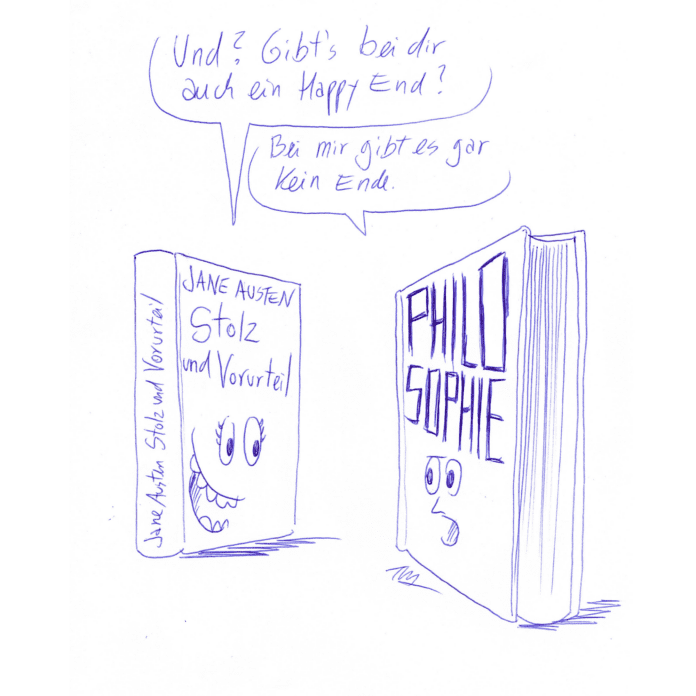 Und? Gibt's bei dir
auch ein Happy End?
Bei mir gibt es gar
kein Ende.
Jane Austen Stolz und Vorurteil
JANE AUSTEN
Stolz
und Vorurteil
PHILO
SOPHIE